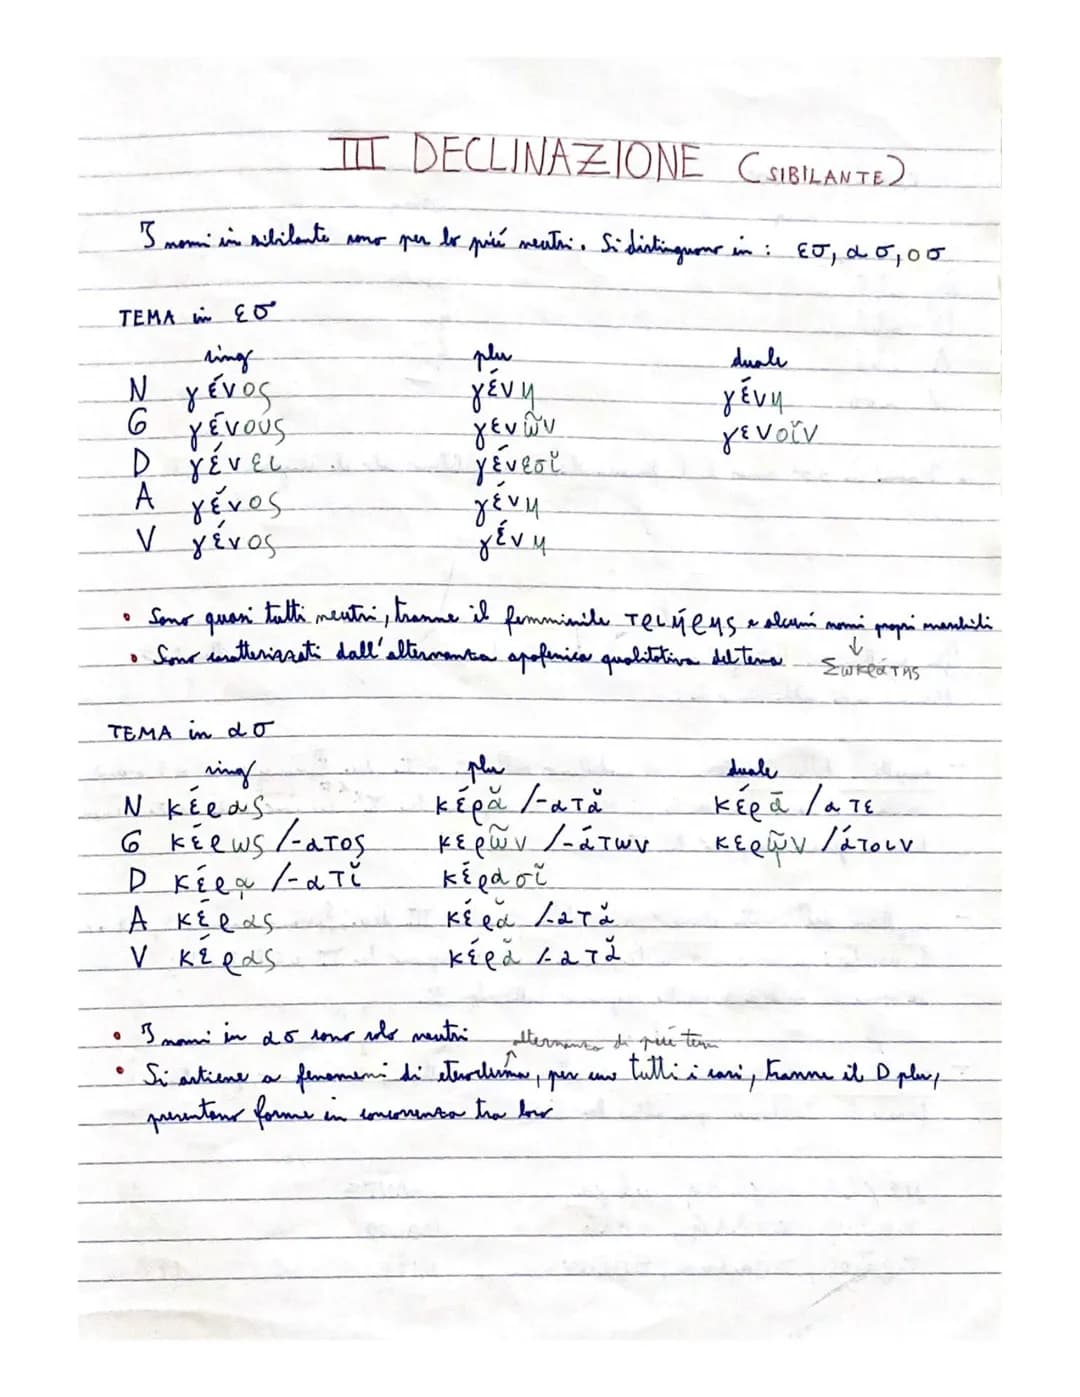 III DECLINAZIONE (SIBILANTE)
I nomi in sibilante sono per lo più neutri. Si distinguono in : εσ, ασ, οσ
TEMA in εσ
sing plu duale
N γένος γένη γένη
G γένους γενῶν γενοῖν
D γένει γένεσῐ
A γένος γένη
V γένος γένη
• Sono quasi tutti neutri, tranne il femminile τριήρης e alcuni nomi propri maschili
↓
• Sono caratterizzati dall'alternanza apofonica qualitativa del tema Σωκράτης
TEMA in ασ
sing plu duale
N κέρας κέρᾰ /-ατᾰ κέρᾱ /ατε
G κέρως /-ατος κερῶν /-άτων κερῷν /άτοιν
D κέρᾳ /-ατῐ κέρασῐ
A κέρας κέρᾰ /-ατᾰ
V κέρας κέρᾰ /-ατᾰ
• I nomi in ασ sono solo neutri alternanza di più temi
• Si assiene a fenomeni di eteroclisia, per cui tutti i casi, tranne il D plu,
presentano forme in concorrenza tra loro